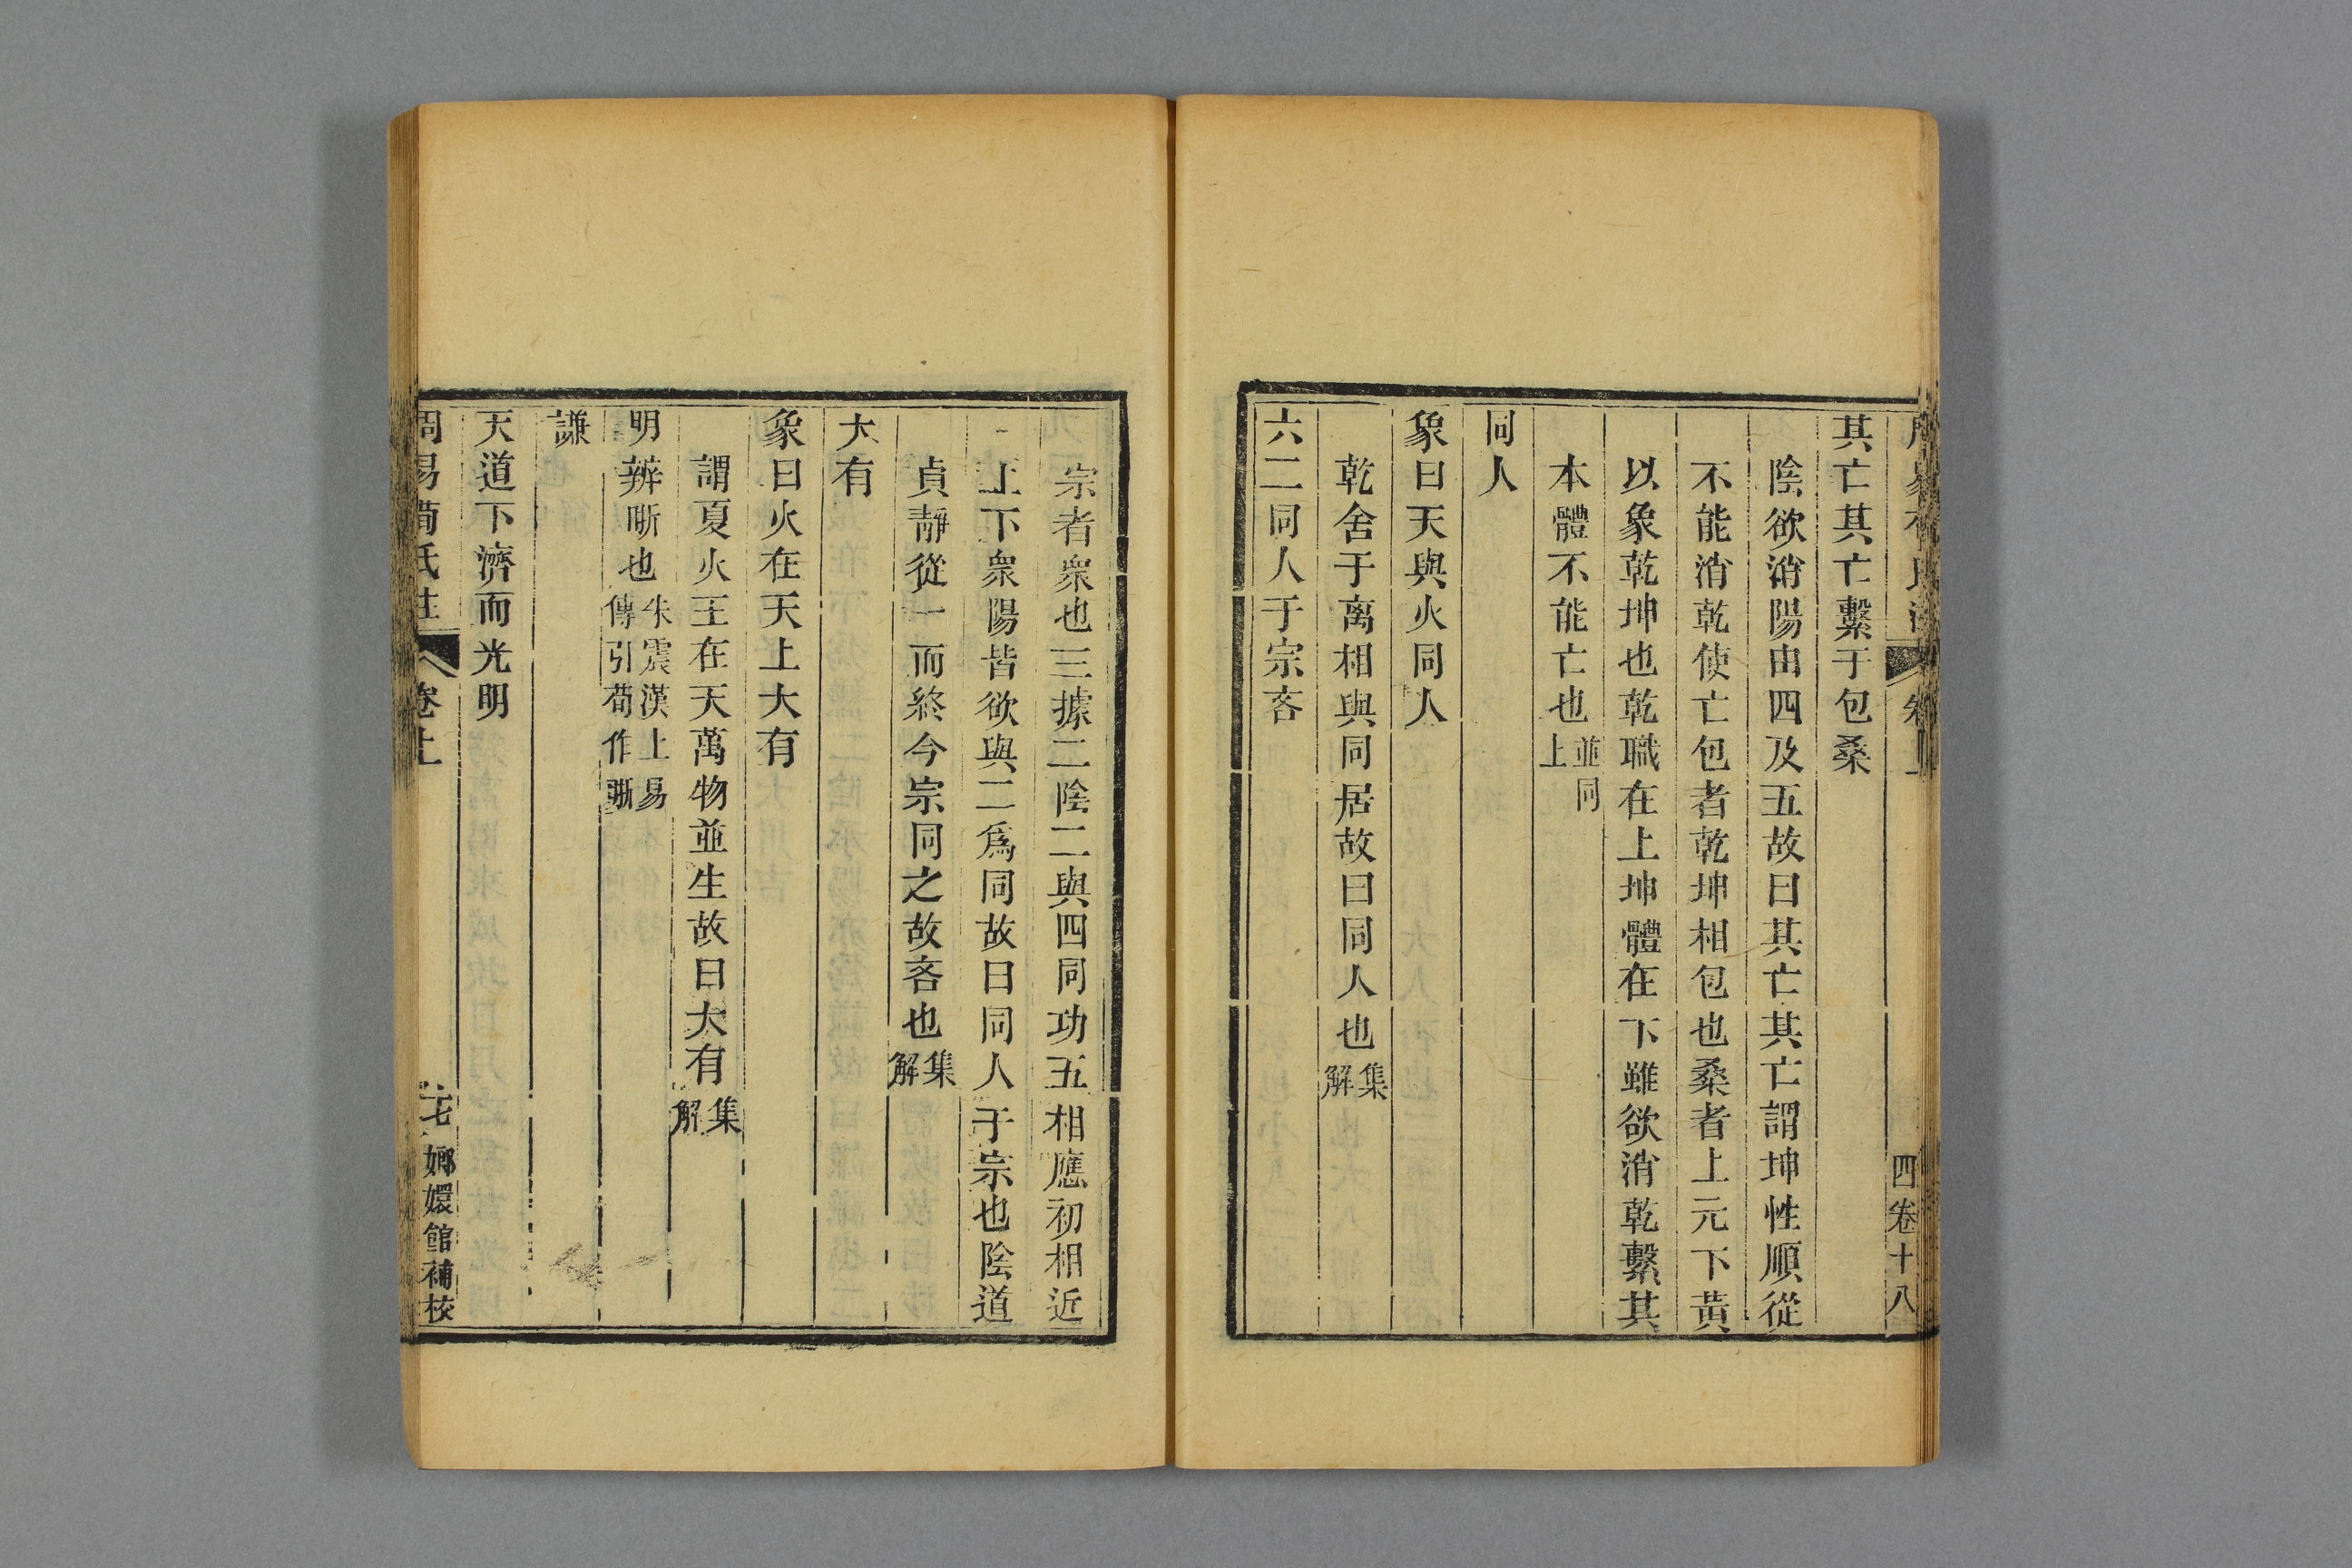 四卷十八
其亡其亡繫于包桑
陰欲消陽由四及五故曰其亡其亡謂坤性順從
不能消乾使亡包者乾坤相包也桑者上元下黃
以象乾坤也乾職在上坤體在下雖欲消乾繫其
本體不能亡也並同上
同人
象曰天與火同人
乾舍于离相與同居故曰同人也集解
六二同人于宗吝
宗者衆也三據二陰二與四同功五相應初相近
上下衆陽皆欲與二爲同故曰同人于宗也陰道
貞靜從一而終今宗同之故吝也集解
大有
象曰火在天上大有
謂夏火王在天萬物並生故曰大有集解
明辨晣也朱震漢上易傳引荀作晣
謙
天道下濟而光明
周易荀氏注 卷上 嫏嬛館補校